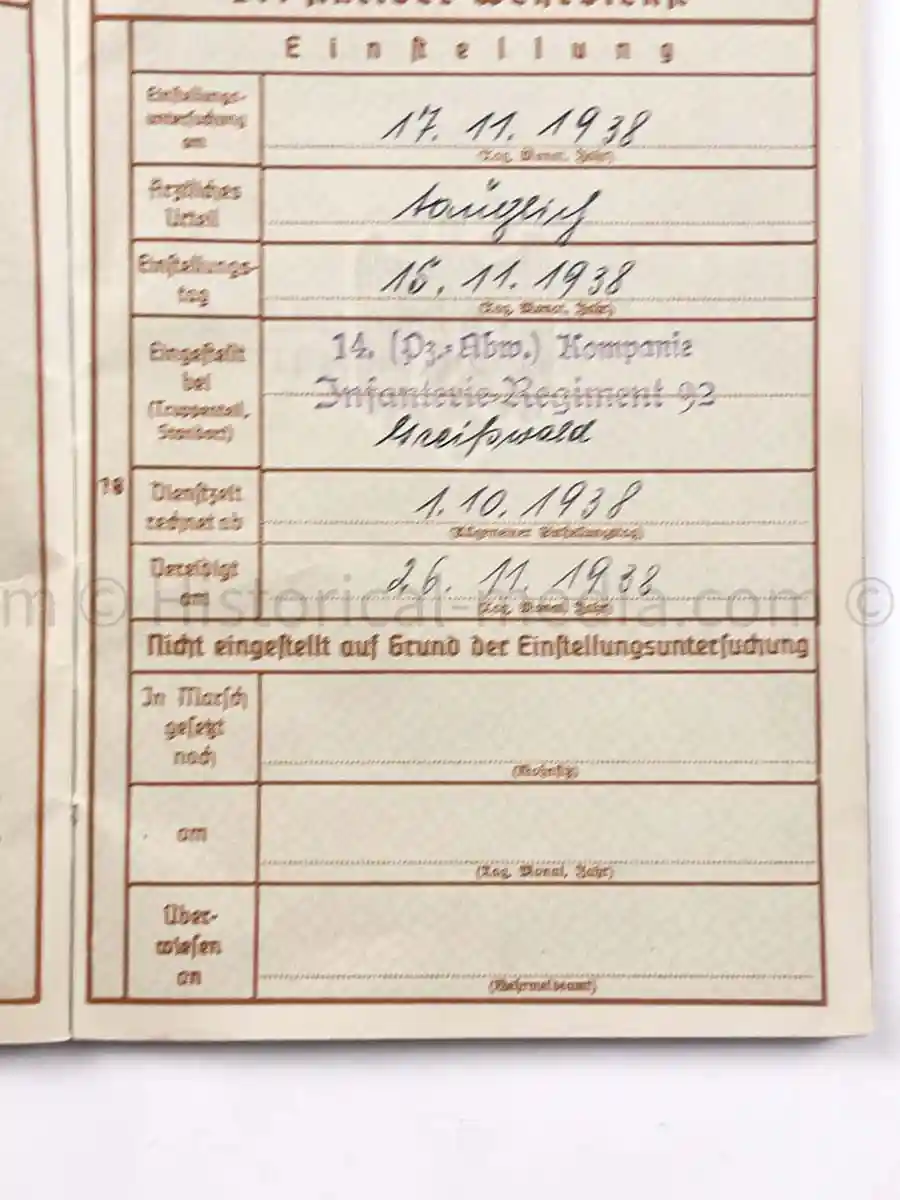 Einstellung
Einstellungs-
untersuchung
am
17. 11. 1938
(Tag, Monat, Jahr)
Ärztliches
Urteil
tauglich
Einstellungs-
tag
15. 11. 1938
(Tag, Monat, Jahr)
Eingestellt
bei
(Truppenteil,
Standort)
14. (Pz.-Abw.) Kompanie
Infanterie-Regiment 92
Greifswald
18
Dienstzeit
rechnet ab
1. 10. 1938
(Allgemeiner Einstellungstag)
Vereidigt
am
26. 11. 1938
(Tag, Monat, Jahr)
m © Historical-Media.com ©
Nicht eingestellt auf Grund der Einstellungsuntersuchung
In Marsch
gesetzt
nach
(Wohnsitz)
am
(Tag, Monat, Jahr)
Über-
wiesen
an
(Wehrmeldeamt)